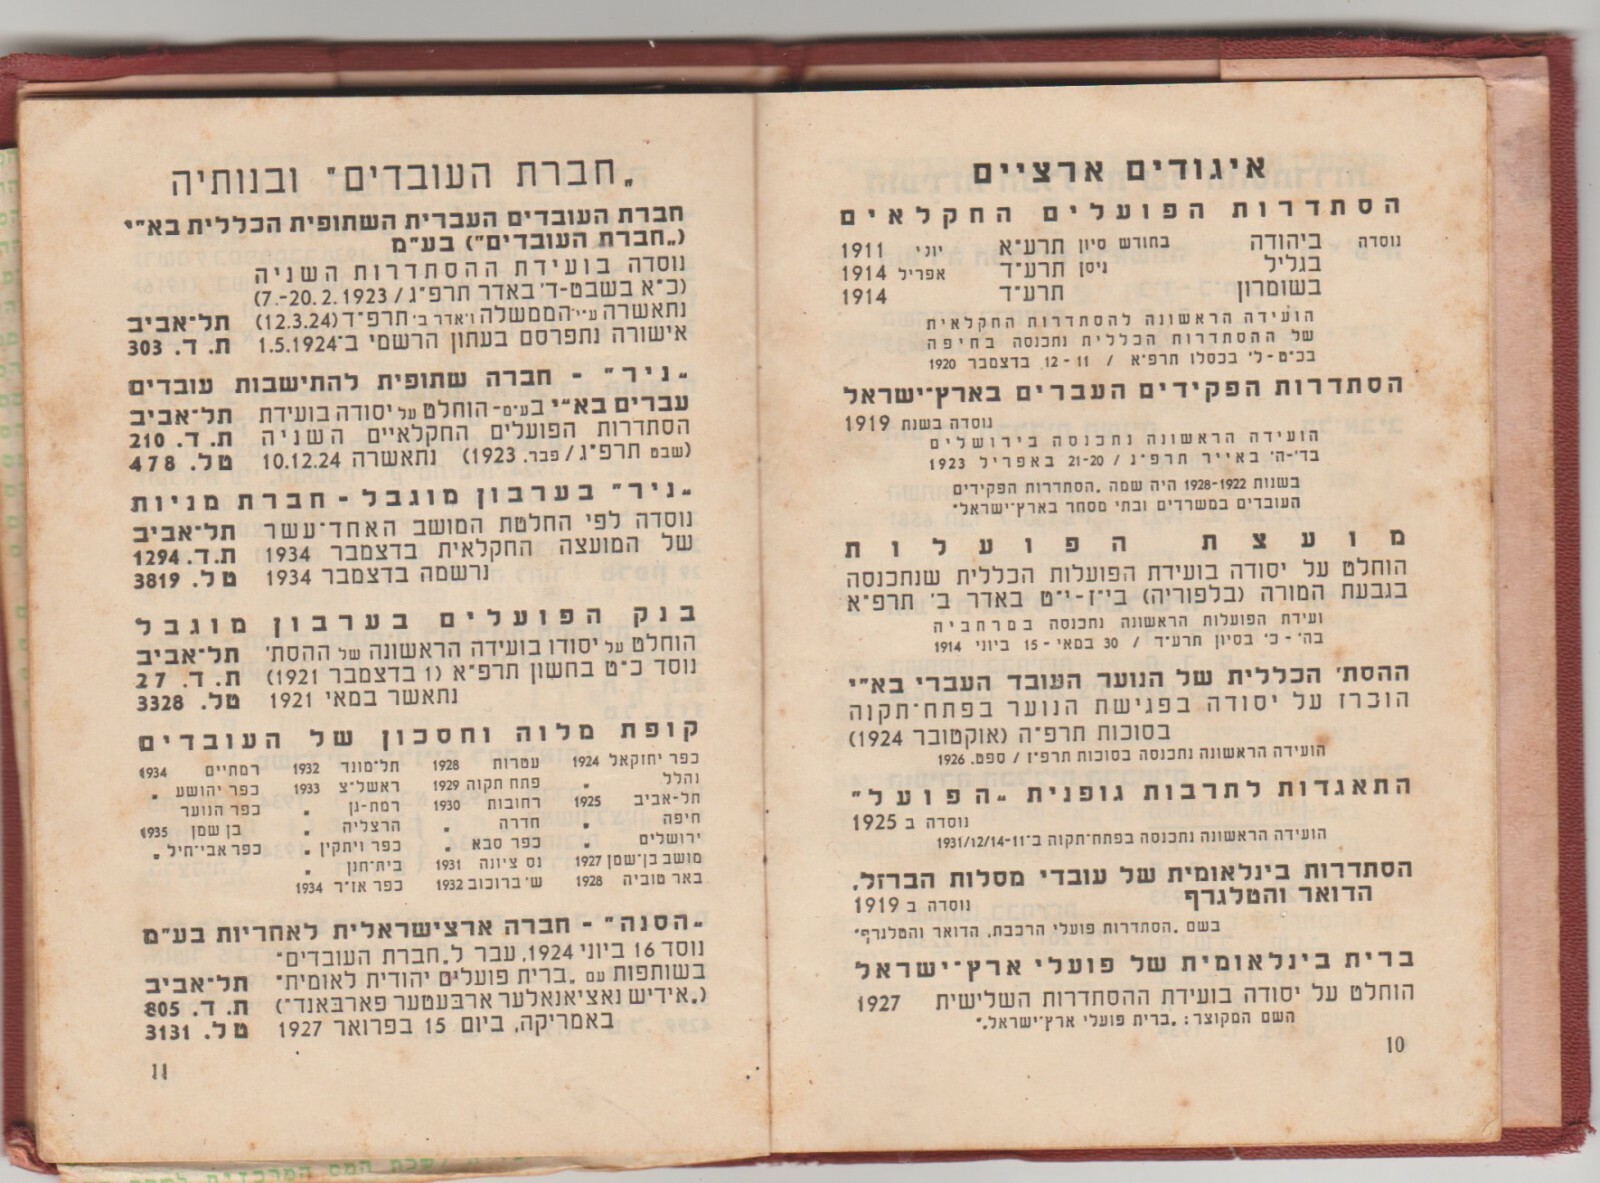 איגודים ארציים
הסתדרות הפועלים החקלאים
נוסדה ביהודה בחודש סיון תרע״א יוני 1911
בגליל ניסן תרע״ד אפריל 1914
בשומרון תרע״ד 1914
הועידה הראשונה להסתדרות החקלאית
של ההסתדרות הכללית נתכנסה בחיפה
בכ״ט-ל׳ בכסלו תרפ״א / 11-12 בדצמבר 1920
הסתדרות הפקידים העברים בארץ־ישראל
נוסדה בשנת 1919
הועידה הראשונה נתכנסה בירושלים
בד׳-ה׳ באייר תרפ״ג / 20-21 באפריל 1923
בשנות 1922-1928 היה שמה „הסתדרות הפקידים
העובדים במשרדים ובתי מסחר בארץ־ישראל״
מועצת הפועלות
הוחלט על יסודה בועידת הפועלות הכללית שנתכנסה
בגבעת המורה (בלפוריה) בי״ז-י״ט באדר ב׳ תרפ״א
ועידת הפועלות הראשונה נתכנסה במרחביה
בה׳-כ׳ בסיון תרע״ד / 30 במאי-15 ביוני 1914
ההסת׳ הכללית של הנוער העובד העברי בא״י
הוכרז על יסודה בפגישת הנוער בפתח־תקוה
בסוכות תרפ״ה (אוקטובר 1924)
הועידה הראשונה נתכנסה בסוכות תרפ״ז / ספט. 1926
התאגדות לתרבות גופנית „הפועל״
נוסדה ב 1925
הועידה הראשונה נתכנסה בפתח־תקוה ב־11-14/12/1931
הסתדרות בינלאומית של עובדי מסלות הברזל,
הדואר והטלגרף
נוסדה ב 1919
בשם „הסתדרות פועלי הרכבת, הדואר והטלגרף״
ברית בינלאומית של פועלי ארץ־ישראל
הוחלט על יסודה בועידת ההסתדרות השלישית 1927
השם המקוצר: „ברית פועלי ארץ־ישראל״
10
„חברת העובדים״ ובנותיה
חברת העובדים העברית השתופית הכללית בא״י
(„חברת העובדים״) בע״מ
נוסדה בועידת ההסתדרות השניה
(כ״א בשבט-ד׳ באדר תרפ״ג / 7.-20.2.1923)
נתאשרה ע״י הממשלה ו׳אדר ב׳ תרפ״ד (12.3.24) תל־אביב
אישורה נתפרסם בעתון הרשמי ב־1.5.1924 ת. ד. 303
„ניר״ - חברה שתופית להתישבות עובדים
עברים בא״י בע״מ-הוחלט על יסודה בועידת תל־אביב
הסתדרות הפועלים החקלאיים השניה ת. ד. 210
(שבט תרפ״ג / פבר. 1923) נתאשרה 10.12.24 טל. 478
„ניר״ בערבון מוגבל - חברת מניות
נוסדה לפי החלטת המושב האחד־עשר תל־אביב
של המועצה החקלאית בדצמבר 1934 ת.ד. 1294
נרשמה בדצמבר 1934 טל. 3819
בנק הפועלים בערבון מוגבל
הוחלט על יסודו בועידה הראשונה של ההסת׳ תל־אביב
נוסד כ״ט בחשון תרפ״א (1 בדצמבר 1921) ת. ד. 27
נתאשר במאי 1921 טל. 3328
קופת מלוה וחסכון של העובדים
כפר יחזקאל 1924 עטרות 1928 תל־מונד 1932 רמתיים 1934
נהלל „ פתח תקוה 1929 ראשל״צ 1933 כפר יהושע „
תל־אביב 1925 רחובות 1930 רמת-גן „ כפר הנוער
חיפה „ חדרה „ הרצליה „ בן שמן 1935
ירושלים „ כפר סבא „ כפר ויתקין „ כפר אבי־חיל „
מושב בן־שמן 1927 נס ציונה 1931 בית־חנן „
באר טוביה 1928 ש׳ ברוכוב 1932 כפר אז״ר 1934
„הסנה״ - חברה ארצישראלית לאחריות בע״מ
נוסד 16 ביוני 1924, עבר ל„חברת העובדים״
בשותפות עם „ברית פועלים יהודית לאומית״ תל־אביב
(„אידיש נאציאנאלער ארבעטער פארבאנד״) ת. ד. 805
באמריקה, ביום 15 בפרואר 1927 טל. 3131
11